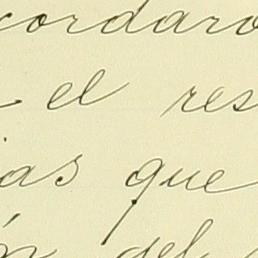 cordaro
el res
as que
n del